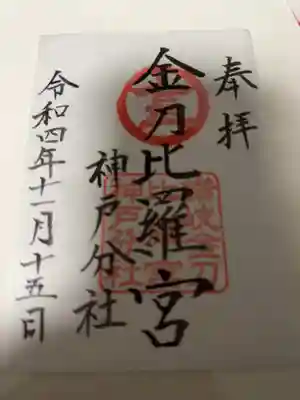 奉拝
金刀比羅宮
神戸分社
令和四年十一月十五日